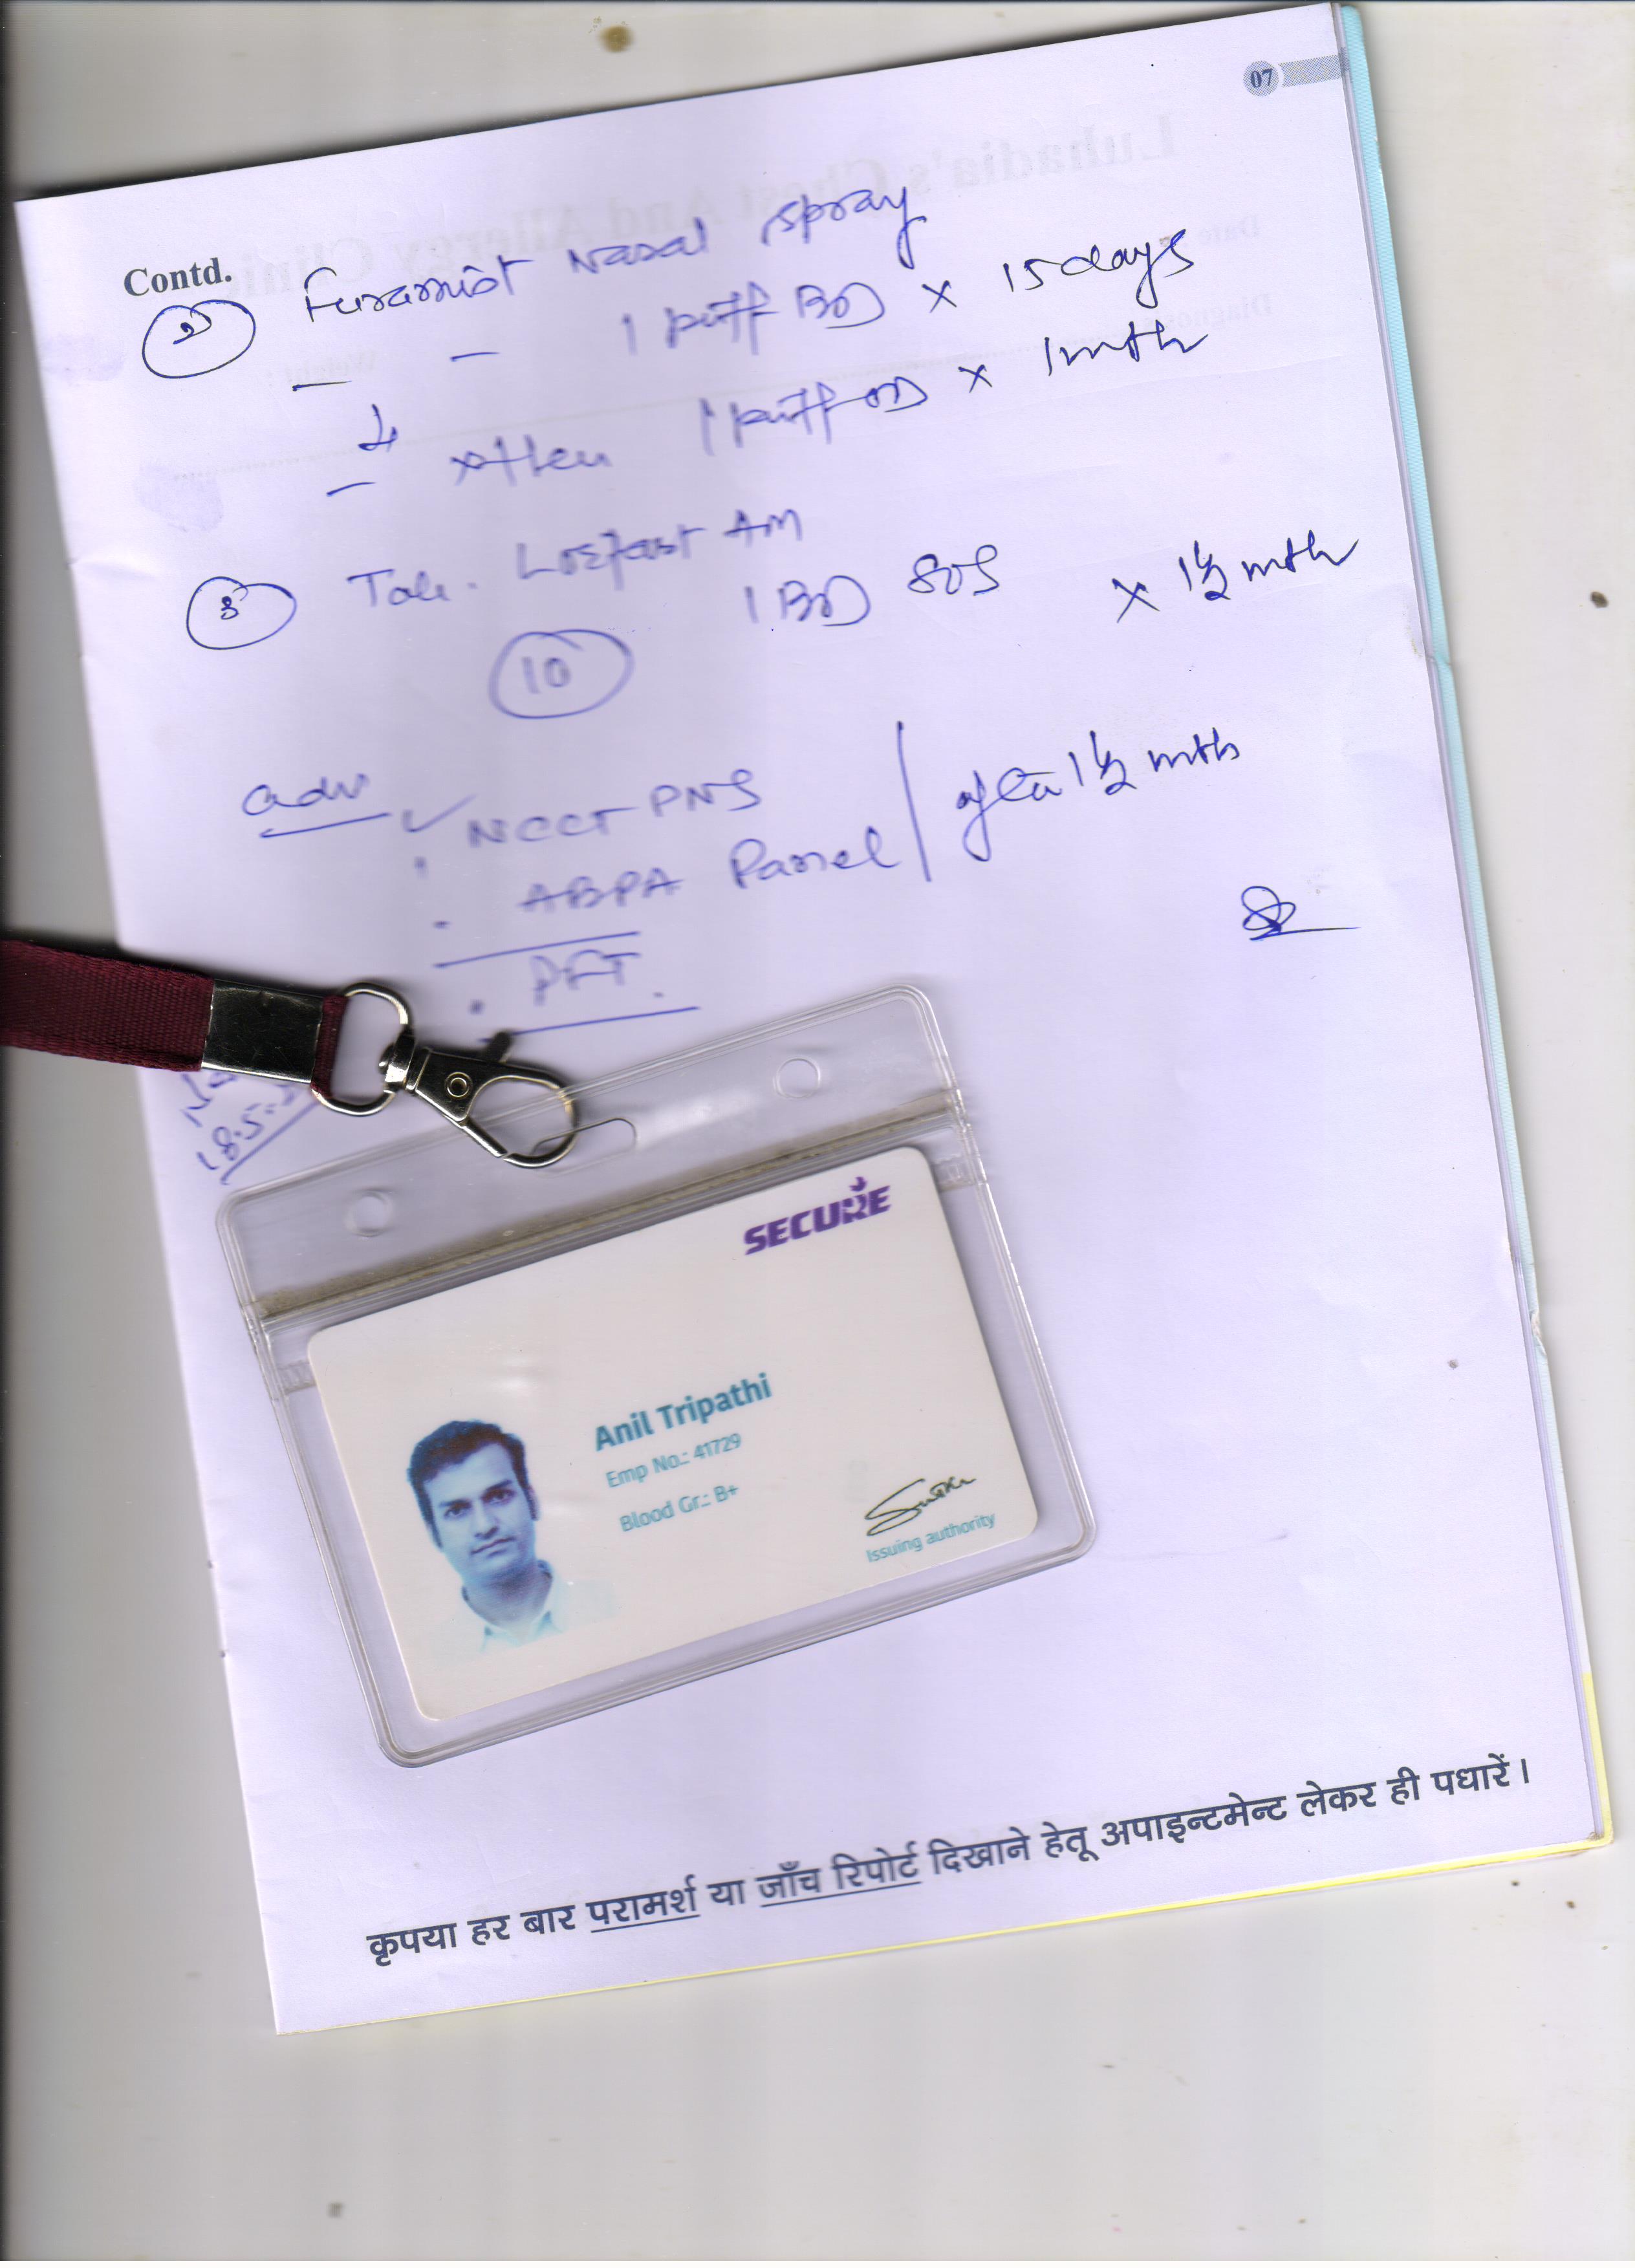 07
Luhadia's Chest And Allergy Clinic
Date
Diagnosis
Weight :
Contd.
2 Furamist Nasal spray
– – 1 puff BD × 15 days
↓
– then 1 puff OD × 1 mth
3 Tab. Lozfast AM
1 BD SOS × 1½ mth
10
adv ✓ NCCT PNS
. ABPA Panel / after 1½ mth
. PFT.
18.5.
SECURE
Anil Tripathi
Emp No.: 41729
Blood Gr.: B+
Issuing authority
कृपया हर बार परामर्श या जाँच रिपोर्ट दिखाने हेतू अपाइन्टमेन्ट लेकर ही पधारें।